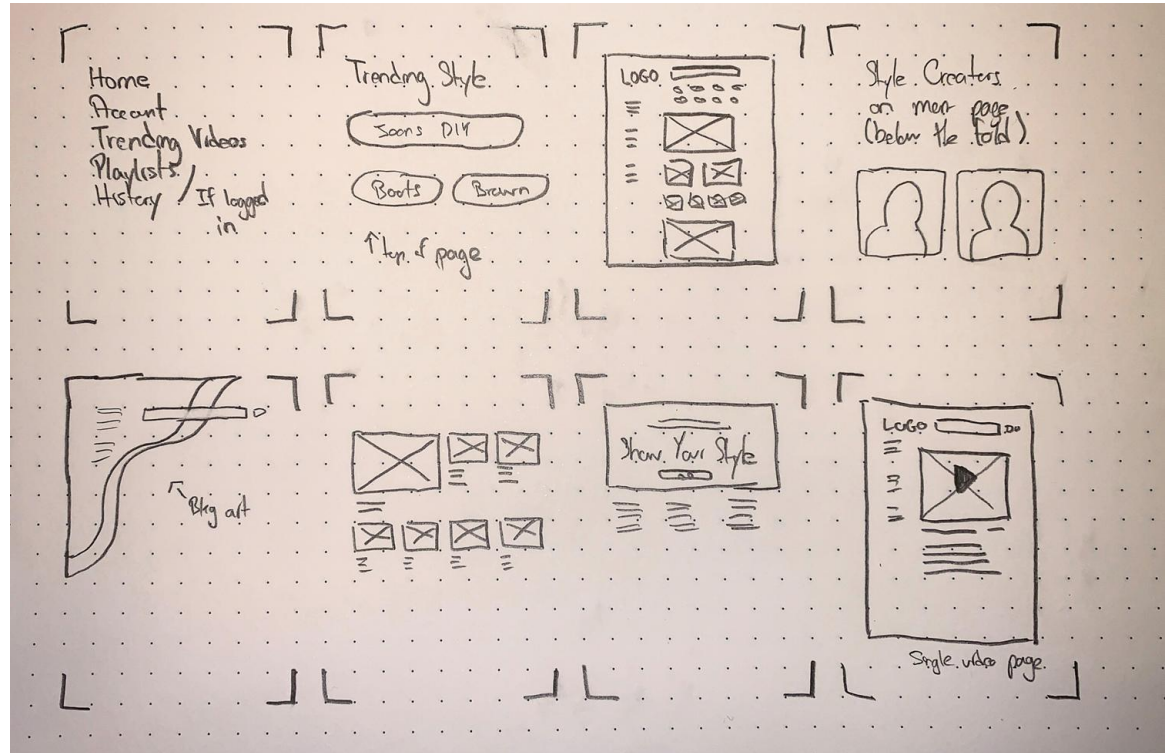 Home
Account
Trending Videos
Playlists
History / If logged
in
Trending Style
Jeans DIY
Boots
Brown
↑ top of page
LOGO
Style Creators
on main page
(below the fold)
Bkg art
Show Your Style
LOGO
Single video page